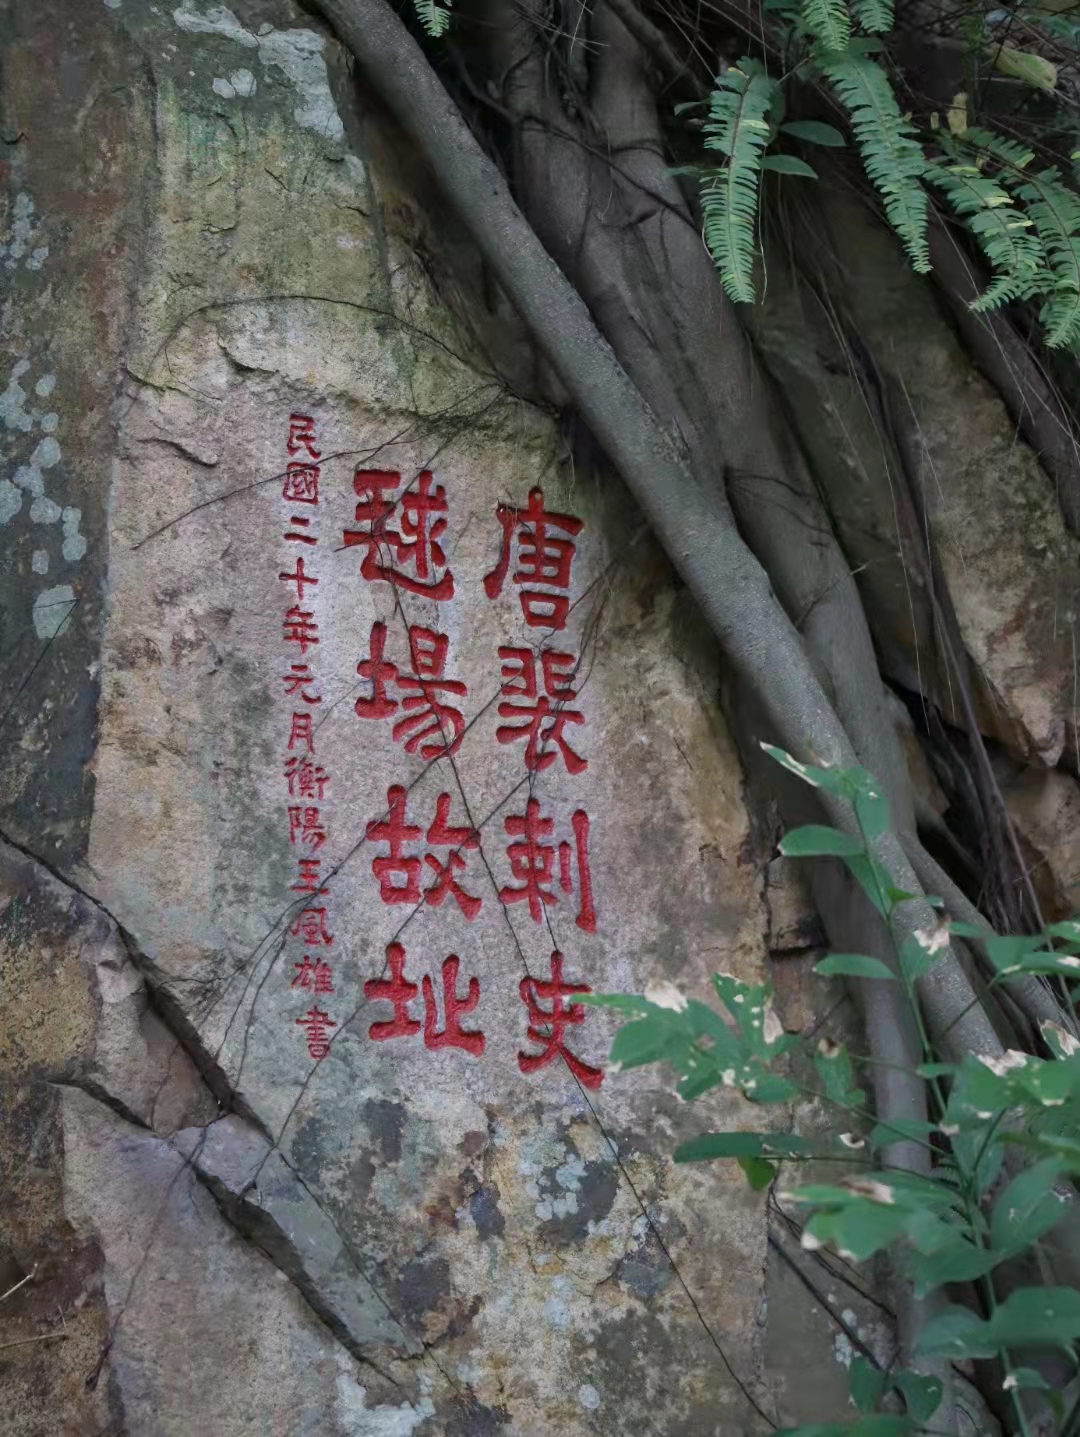 唐裴刺史
毬場故址
民國二十年元月衡陽王風雄書